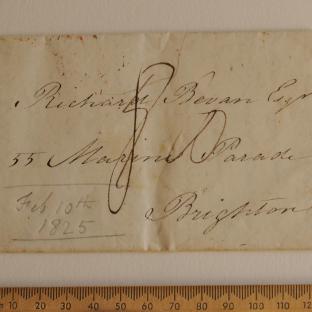 Richard Bevan Esqr
55 Marine Parade
Brighton
Feb 10th
1825
10 20 30 40 50 60 70 80 90 100 110 120